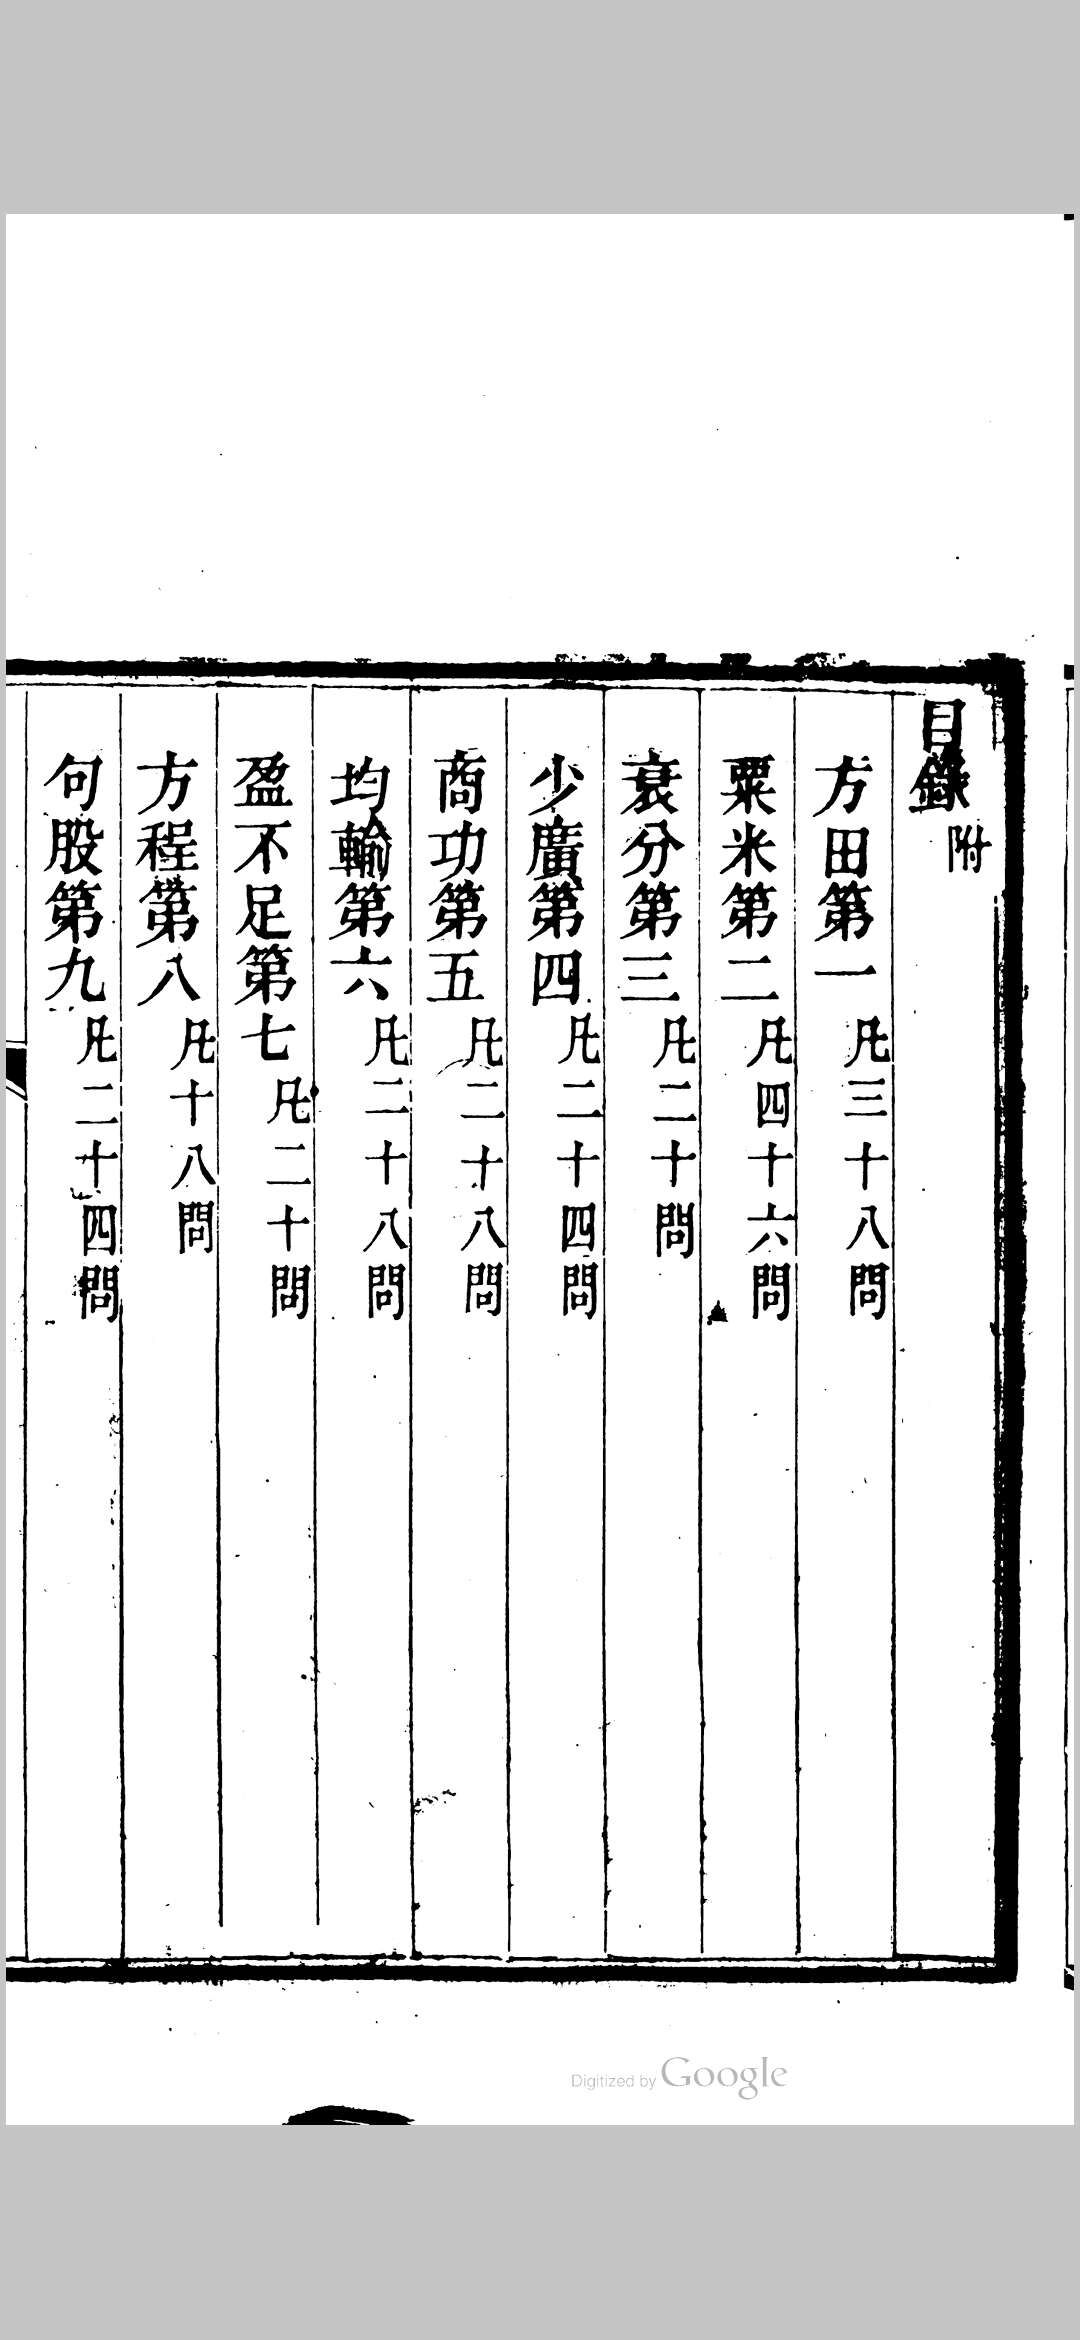 目錄附
方田第一凡三十八問
粟米第二凡四十六問
衰分第三凡二十問
少廣第四凡二十四問
商功第五凡二十八問
均輸第六凡二十八問
盈不足第七凡二十問
方程第八凡十八問
句股第九凡二十四問
Digitized by Google